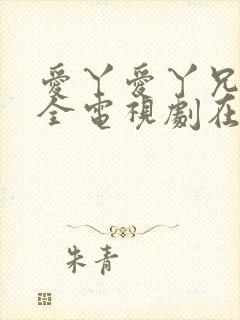 愛丫愛丫兄
全電視劇在
朱青